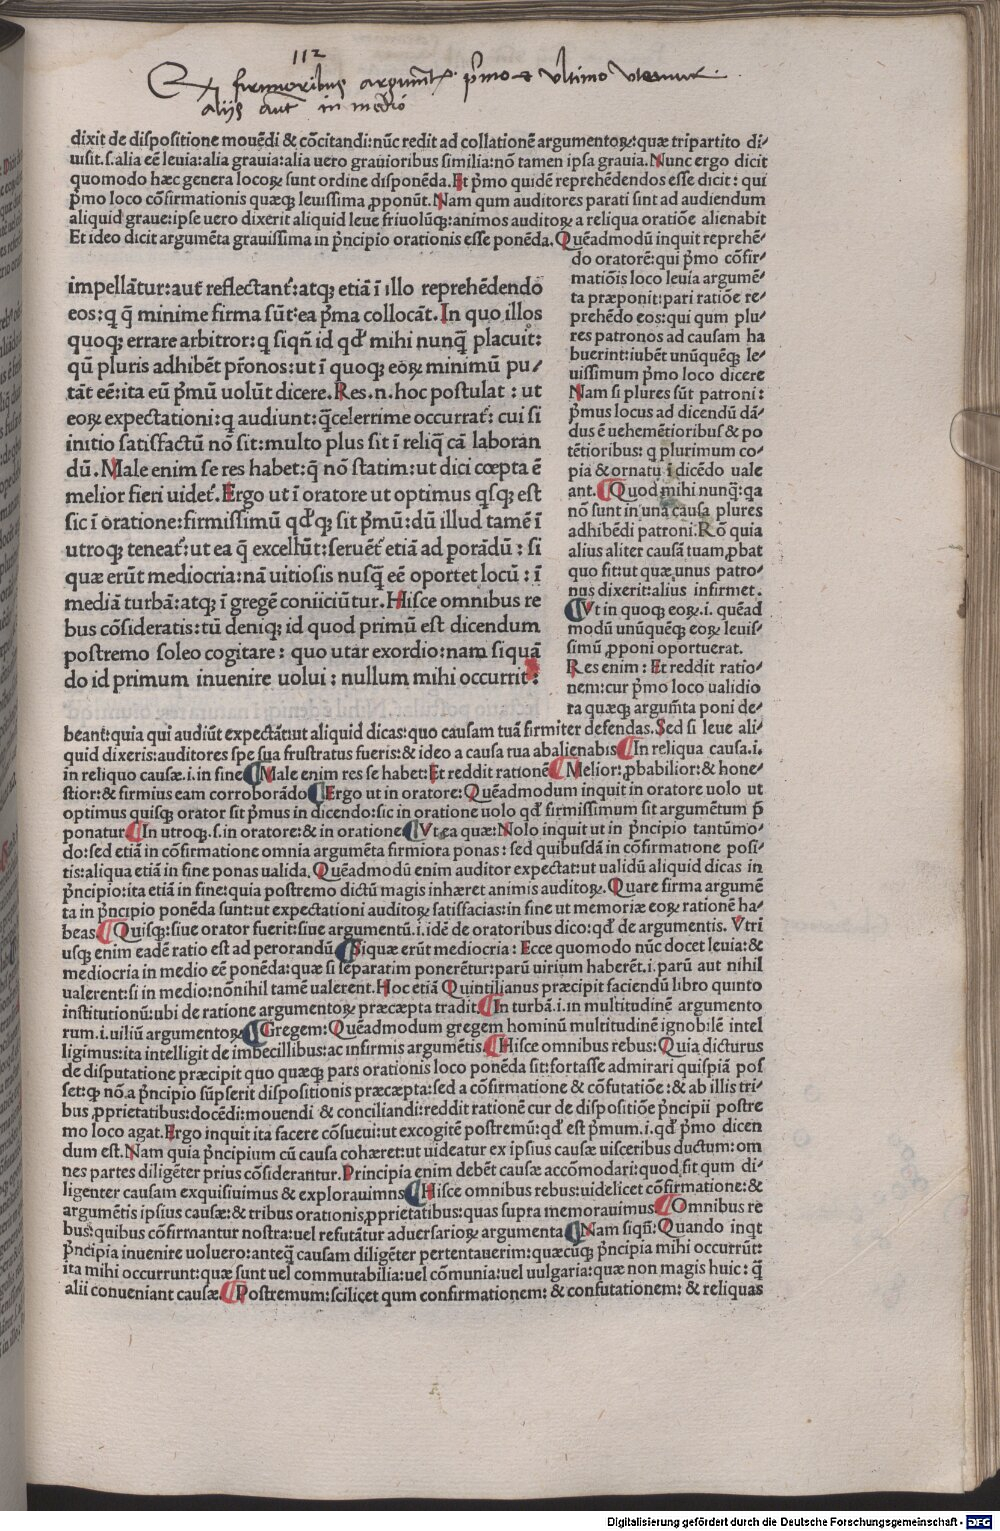 112
Ex firmioribus argumẽt. p̃mo et ultimo utemur.
aliis aũt in medio
dixit de dispositione mouẽdi & cõcitandi:nũc redit ad collationẽ argumentoꝝ:quæ tripartito di-
uisit.s.alia eẽ leuia:alia grauia:alia uero grauioribus similia:nõ tamen ipsa grauia.Nunc ergo dicit
quomodo hæc genera locoꝝ sunt ordine disponẽda.Et p̃mo quidẽ reprehẽdendos esse dicit: qui
p̃mo loco cõfirmationis quæqꝫ leuissima ꝓponũt.Nam qum auditores parati sint ad audiendum
aliquid graue:ipse uero dixerit aliquid leue friuolũqꝫ:animos auditoꝝ a reliqua oratiõe alienabit
Et ideo dicit argumẽta grauissima in p̃ncipio orationis esse ponẽda.Quẽadmodũ inquit reprehẽ-
do oratorẽ:qui p̃mo cõfir-
matiõis loco leuia argumẽ-
ta præponit:pari ratiõe re-
prehẽdo eos:qui qum plu-
res patronos ad causam ha
buerint:iubẽt unũquẽqꝫ le-
uissimum p̃mo loco dicere
Nam si plures sũt patroni:
p̃mus locus ad dicẽdũ dã-
dus ẽ uehemẽtioribus & po
tẽtioribus: q plurimum co-
pia & ornatu i dicẽdo uale
ant.¶Quod mihi nunq̃:qa
nõ sunt in una causa plures
adhibẽdi patroni.Rõ quia
alius aliter causã tuam,ꝓbat
quo fit:ut quæ,unus patro-
nus dixerit:alius infirmet.
¶Vt in quoqꝫ eoꝝ.i. quẽad
modũ unũquẽqꝫ eoꝝ leuis-
simũ ꝓponi oportuerat.
Res enim: Et reddit ratio-
nem:cur p̃mo loco ualidio
ra quæqꝫ argum̃ta poni de-
impellãtur:aut̃ reflectant̃:atqꝫ etiã ĩ illo reprehẽdendo
eos:q q̃ minime firma sũt:ea p̃ma collocãt.In quo illos
quoqꝫ errare arbitror:q siqñ id qd̃ mihi nunq̃ placuit:
qũ pluris adhibẽt p̃ronos:ut ĩ quoqꝫ eoꝝ minimũ pu-
tãt eẽ:ita eũ p̃mũ uolũt dicere.Res.n.hoc postulat : ut
eoꝝ expectationi:q audiunt:q̃celerrime occurrat̃: cui si
initio satisfactũ nõ sit:multo plus sit ĩ reliq̃ cã laboran
dũ.Male enim se res habet:q̃ nõ statim:ut dici cœpta ẽ
melior fieri uidet̃.Ergo ut ĩ oratore ut optimus qsqꝫ est
sic ĩ oratione:firmissimũ qd̃qꝫ sit p̃mũ:dũ illud tamẽ ĩ
utroqꝫ teneat̃:ut ea q̃ excellũt:seruẽt̃ etiã ad porãdũ : si
quæ erũt mediocria:nã uitiosis nusq̃ eẽ oportet locũ : ĩ
mediã turbã:atqꝫ ĩ gregẽ coniiciũtur.Hisce omnibus re
bus cõsideratis:tũ deniqꝫ id quod primũ est dicendum
postremo soleo cogitare : quo utar exordio:nam siquã
do id primum inuenire uolui : nullum mihi occurrit:
beant:quia qui audiũt expectãt:ut aliquid dicas:quo causam tuã firmiter defendas.Sed si leue ali-
quid dixeris:auditores spe sua frustratus fueris:& ideo a causa tua abalienabis¶In reliqua causa.i.
in reliquo causæ.i.in fine¶Male enim res se habet:Et reddit rationẽ¶Melior:ꝓbabilior:& hone-
stior:& firmius eam corroborãdo¶Ergo ut in oratore:Quẽadmodum inquit in oratore uolo ut
optimus quisqꝫ orator sit p̃mus in dicendo:sic in oratione uolo qd̃ firmissimum sit argumẽtum p̃
ponatur¶In utroqꝫ.s.in oratore:& in oratione¶Vt ea quæ:Nolo inquit ut in p̃ncipio tantũmo-
do:sed etiã in cõfirmatione omnia argumẽta firmiora ponas : sed quibusdã in cõfirmatione posi-
tis:aliqua etiã in fine ponas ualida.Quẽadmodũ enim auditor expectat:ut ualidũ aliquid dicas in
p̃ncipio:ita etiã in fine:quia postremo dictũ magis inhæret animis auditoꝝ.Quare firma argumẽ
ta in p̃ncipio ponẽda sunt:ut expectationi auditoꝝ satisfacias:in fine ut memoriæ eoꝝ rationẽ ha-
beas¶Quisqꝫ:siue orator fuerit:siue argumentũ.i.idẽ de oratoribus dico:qd̃ de argumentis. Vtri
usqꝫ enim eadẽ ratio est ad perorandũ¶Siquæ erũt mediocria: Ecce quomodo nũc docet leuia:&
mediocria in medio eẽ ponẽda:quæ si separatim ponerẽtur:parũ uirium haberẽt.i.parũ aut nihil
ualerent:si in medio:nõnihil tamẽ ualerent.Hoc etiã Quintilianus præcipit faciendũ libro quinto
institutionũ:ubi de ratione argumentoꝝ præcæpta tradit¶In turbã.i.in multitudinẽ argumento
rum.i.uiliũ argumentoꝝ¶Gregem:Quẽadmodum gregem hominũ multitudinẽ ignobilẽ intel
ligimus:ita intelligit de imbecillibus:ac infirmis argumẽtis¶Hisce omnibus rebus:Quia dicturus
de disputatione præcipit quo quæqꝫ pars orationis loco ponẽda sit:fortasse admirari quispiã pos
set:ꝙ nõ.a p̃ncipio sũpserit dispositionis præcæpta:sed a cõfirmatione & cõfutatiõe:& ab illis tri-
bus ꝓprietatibus:docẽdi:mouendi & conciliandi:reddit rationẽ cur de dispositiõe p̃ncipii postre
mo loco agat.Ergo inquit ita facere cõsueui:ut excogitẽ postremũ:qd̃ est p̃mum.i.qd̃ p̃mo dicen
dum est.Nam quia p̃ncipium cũ causa cohæret:ut uideatur ex ipsius causæ uisceribus ductum:om
nes partes diligẽter prius cõsiderantur.Principia enim debẽt causæ accõmodari:quod fit qum di-
ligenter causam exquisiuimus & explorauimns¶Hisce omnibus rebus:uidelicet cõfirmatione:&
argumẽtis ipsius causæ:& tribus orationis,ꝓprietatibus:quas supra memorauimus¶Omnibus re
bus:quibus cõfirmantur nostra:uel refutãtur aduersarioꝝ argumenta¶Nam siqñ:Quando inqt
p̃ncipia inuenire uoluero:anteq̃ causam diligẽter pertentauerim:quæcũqꝫ p̃ncipia mihi occurrũt:
ita mihi occurrunt:quæ sunt uel commutabilia:uel cõmunia:uel uulgaria:quæ non magis huic: q̃
alii conueniant causæ¶Postremum:scilicet qum confirmationem: & confutationem: & reliquas
Digitalisierung gefördert durch die Deutsche Forschungsgemeinschaft - DFG